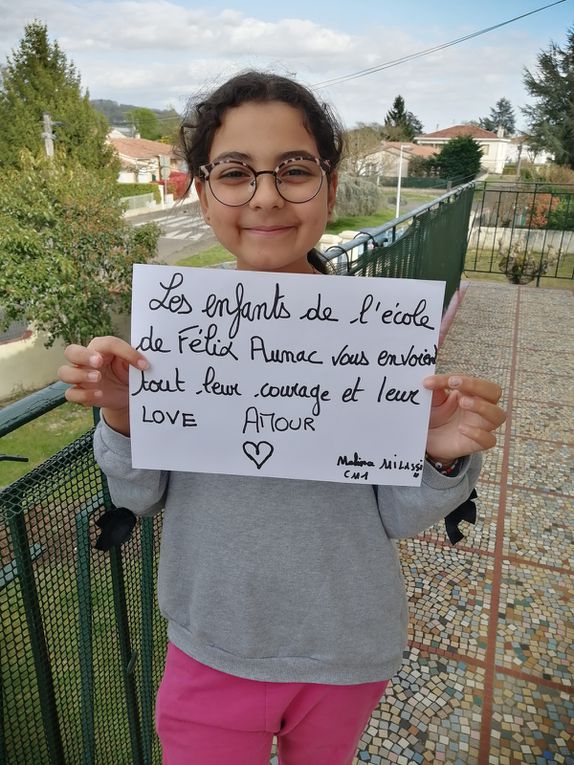 Les enfants de l'école
de Félix Aunac vous envoient
tout leur courage et leur
LOVE AMOUR
Malina MILASSi
CM1